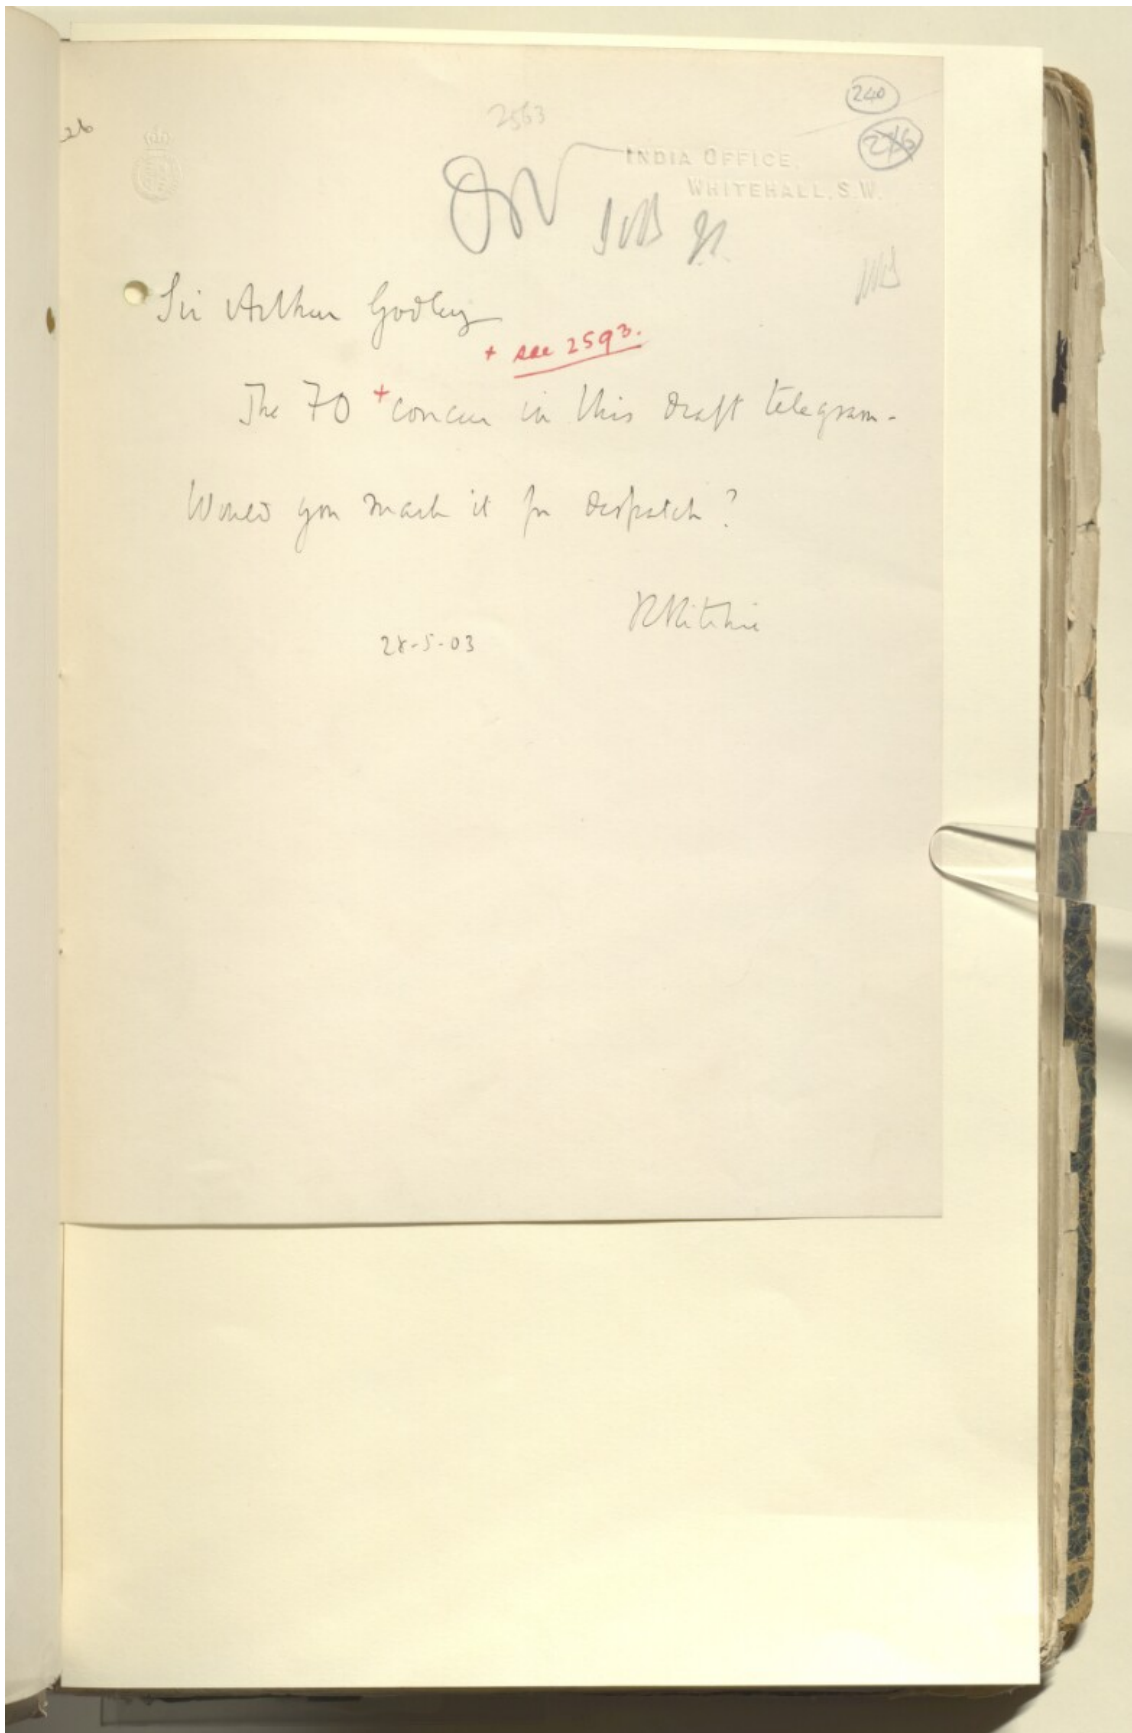 240
2563
26
INDIA OFFICE,
WHITEHALL, S.W.
Sir Arthur Godley
+ see 2593.
The FO + concur in this draft telegram.
Would you mark it for despatch?
RRitchie
28-5-03